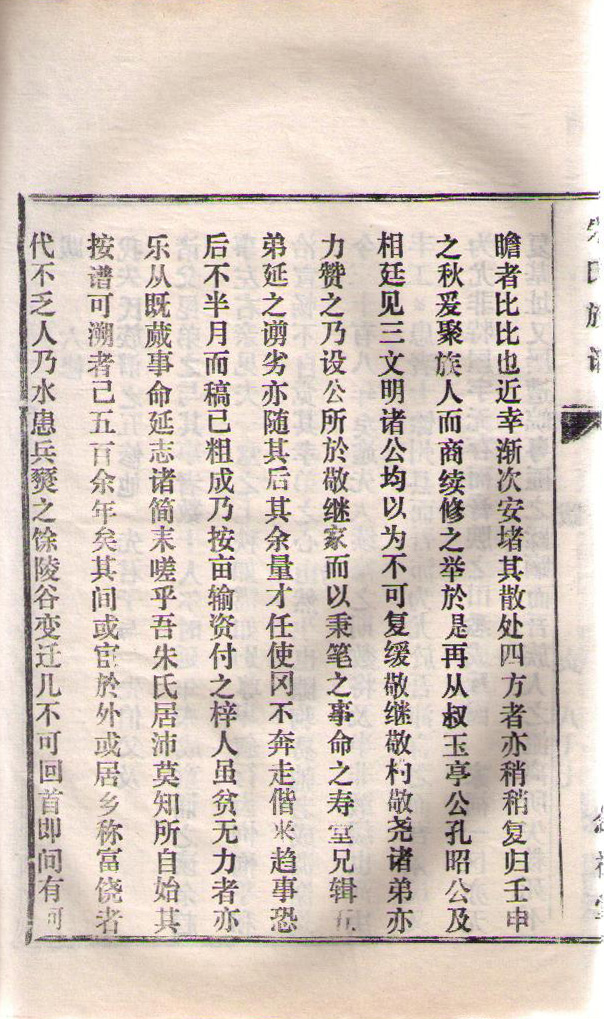 朱氏族谱
瞻者比比也近幸渐次安堵其散处四方者亦稍稍复归壬申
之秋爰聚族人而商续修之举於是再从叔玉亭公孔昭公及
相廷见三文明诸公均以为不可复缓敬继敬村敬尧诸弟亦
力赞之乃设公所於敬继家而以秉笔之事命之寿堂兄辑五
弟延之谫劣亦随其后其余量才任使冈不奔走偕来趋事恐
后不半月而稿己粗成乃按亩输资付之梓人虽贫无力者亦
乐从既蒇事命延志诸简末嗟乎吾朱氏居沛莫知所自始其
按谱可溯者己五百余年矣其间或官於外或居乡称富饶者
代不乏人乃水患兵燹之馀陵谷变迁几不可回首即间有可